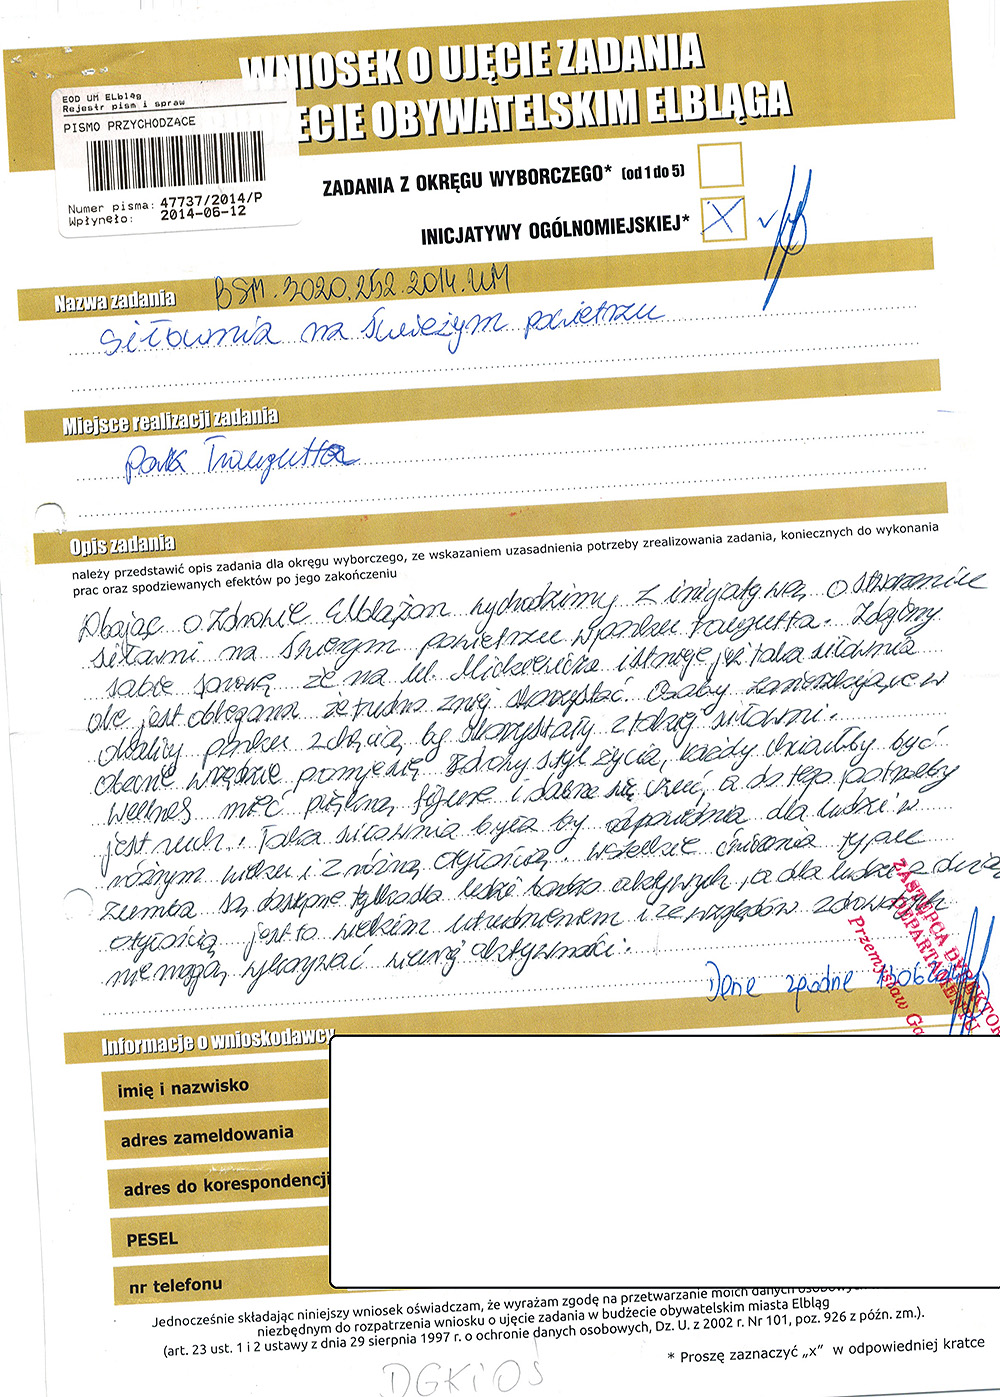 WNIOSEK O UJĘCIE ZADANIA
ECIE OBYWATELSKIM ELBLĄGA
EOD UM ELbląg
Rejestr pism i spraw
PISMO PRZYCHODZĄCE
Numer pisma: 47737/2014/P
Wpłynęło: 2014-06-12
ZADANIA Z OKRĘGU WYBORCZEGO* (od 1 do 5)
INICJATYWY OGÓLNOMIEJSKIEJ* X
Nazwa zadania BSM.3020.252.2014.UM
Siłownia na świeżym powietrzu
Miejsce realizacji zadania
park Traugutta
Opis zadania
należy przedstawić opis zadania dla okręgu wyborczego, ze wskazaniem uzasadnienia potrzeby zrealizowania zadania, koniecznych do wykonania
prac oraz spodziewanych efektów po jego zakończeniu
Dbając o zdrowie Elblążan wychodzimy z inicjatywą o stworzenie
siłowni na powietrzu w parku Traugutta. Zdajemy
sobie sprawę że na ul. Mickiewicza istnieje już taka siłownia
ale jest oblegana że trudno z niej skorzystać. Osoby zamieszkujące w
okolicy parku z chęcią by skorzystały z takiej siłowni.
Obecnie wszędzie promuje się zdrowy styl życia, każdy chciałby być
wellnes mieć piękną figurę i dobrze się czuć, a do tego potrzebny
jest ruch. Taka siłownia była by odpowiednia dla ludzi w
różnym wieku i z różną otyłością. Wszelkie ćwiczenia typu
zumba są dostępne tylko dla ludzi bardzo aktywnych, a dla ludzi z dużą
otyłością jest to wielkim utrudnieniem i ze względów zdrowotnych
nie mogą wykonywać aktywności.
Dane zgodne
ZASTĘPCA DYREKTOR
DEPARTAMENTU
Przemysław Ga
Informacje o wnioskodawcy
imię i nazwisko
adres zameldowania
adres do korespondencji
PESEL
nr telefonu
Jednocześnie składając niniejszy wniosek oświadczam, że wyrażam zgodę na przetwarzanie moich danych osobowych
niezbędnym do rozpatrzenia wniosku o ujęcie zadania w budżecie obywatelskim miasta Elbląg
(art. 23 ust. 1 i 2 ustawy z dnia 29 sierpnia 1997 r. o ochronie danych osobowych, Dz. U. z 2002 r. Nr 101, poz. 926 z późn. zm.).
* Proszę zaznaczyć „x” w odpowiedniej kratce
DGKiOŚ